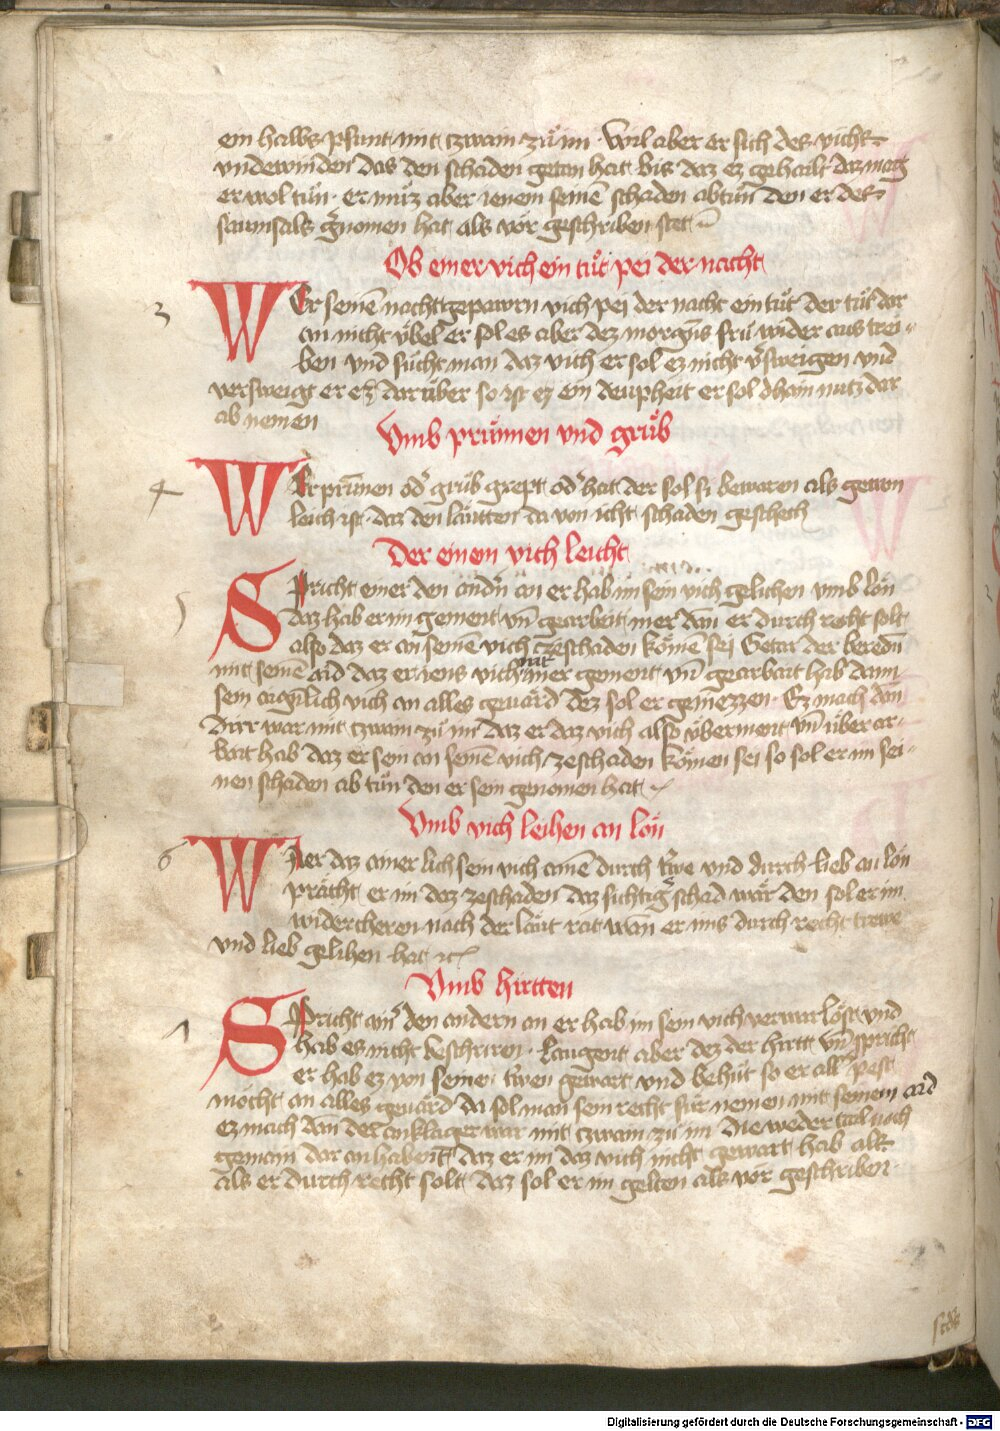 ein halbs pfunt mit zwain zu im · Wil aber er sich des vichs
vnderwinden das den schaden getan hat bis daz ez gehailt daz mag
er wol tůn · er můz aber ienem seinē schaden abtůn den er des
saumsals gnomen hat als vor geschriben stet
Ob einer vich ein tůt pei der nacht
3
WEr seinē nachtgepawrn vich pei der nacht ein tůt der tůt dar
an nicht v̈bel er sol es aber dez morgēs frů wider aus trei-
ben vnd sůcht man daz vich er sol ez nicht v̓sweigen vnd
versweigt er ez darüber so ist ez ein deupheit er sol dhain nutz dar
ab nemen
Vmb prünnen vnd grůb
4
WEr prūnen od̓ grůb grept od̓ hat der sol si bewaren als gewon
leich ist daz den läutten da von icht schaden geschech
Der einem vich leicht
5
SPricht einer den andn̄ an er hab im sein vich gelichen vmb lön
daz hab er im gement vn̄ gearbeit mer dān er durch recht solt
also daz er an seinē vich ze schaden kömē sei Getar der beredn̄
mit seinē aid daz er iens vich nit mer gement vn̄ gearbait hab dann
sein aigēlich vich an alles geuärd Dez sol er geniezzen · Ez mach dān
Jener war mit zwain zu im daz er daz vich also überment vn̄ über ar-
bait hab daz er sein an seinē vich ze schaden kömen sei so sol er im sei-
nen schaden ab tůn den er sein genomen hat
Vmb vich leihen an lön
6
WEr daz ainer lich sein vich ainē durch tr̄we vnd durch lieb an lön
prächt er im daz ze schaden daz sichtig schad wär den sol er im
widercheren nach der läut rat wān er ims durch recht trewe
vnd lieb gelihen hat ꝛc
Vmb hirtten
7
SPricht ain̓ den andern an er hab im sein vich verwarlöst vnd
hab es nicht beschiren · Laugent aber dez der hirtt vn̄ spricht
er hab ez von seinen tr̄wen gewart vnd behůt so er aller pest
möcht an alles geuärd da sol man sein recht für nemen mit seinem aid
ez mach dān der anklager war mit zwain zu im die weder tail noch
gemain dar an habent daz er im daz vich nicht gewart hab alz
als er durch recht solt daz sol er im gelten als vor geschriben
Digitalisierung gefördert durch die Deutsche Forschungsgemeinschaft - DFG